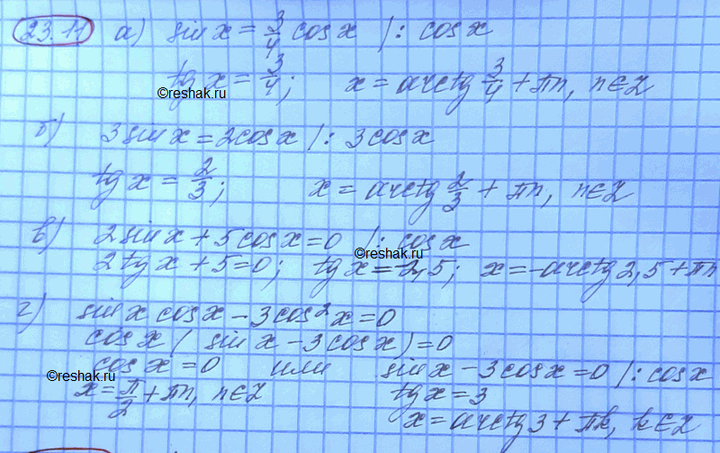 23.11 а) sin x = 3/4 cos x |: cos x
tg x = 3/4; x = arctg 3/4 + πn, n∈Z
©reshak.ru
б) 3 sin x = 2 cos x |: 3 cos x
tg x = 2/3; x = arctg 2/3 + πn, n∈Z
в) 2 sin x + 5 cos x = 0 |: cos x
©reshak.ru
2 tg x + 5 = 0; tg x = -2,5; x = -arctg 2,5 + πn
г) sin x cos x - 3 cos² x = 0
cos x ( sin x - 3 cos x ) = 0
cos x = 0 или sin x - 3 cos x = 0 |: cos x
©reshak.ru
x = π/2 + πn, n∈Z tg x = 3
x = arctg 3 + πk, k∈Z